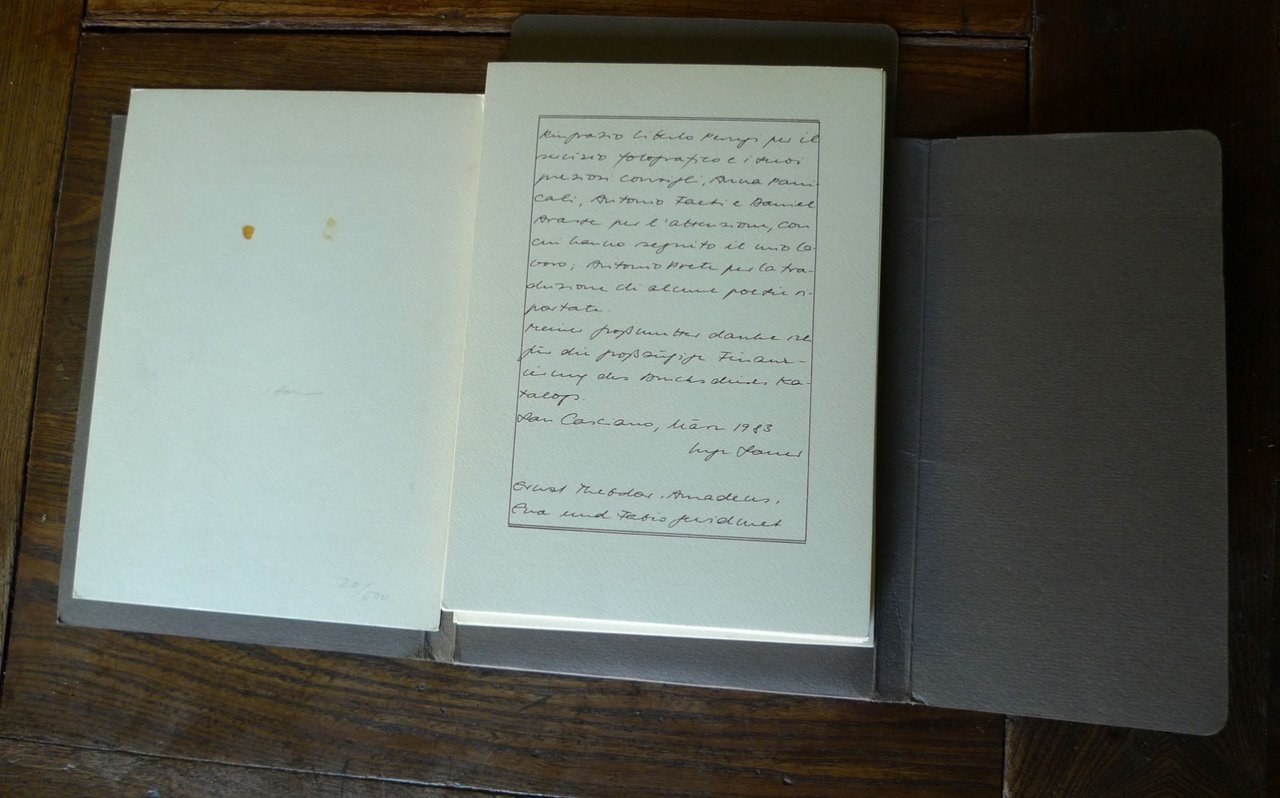 Ringrazio Liberto Perugi per il
servizio fotografico e i suoi
preziosi consigli, Anna Pani-
cali, Antonio Faeti e Daniel
per l'attenzione, con
cui hanno seguito il mio la-
voro; Antonio Prete per la tra-
duzione di alcune poesie ri-
portate.
Meiner Großmutter danke ich
für die großzügige Finanz-
ierung des Drucks dieses Ka-
talogs.
San Casciano, März 1983
Ernst Theodor, Amadeus,
Eva und Fabio gewidmet
20/
/500